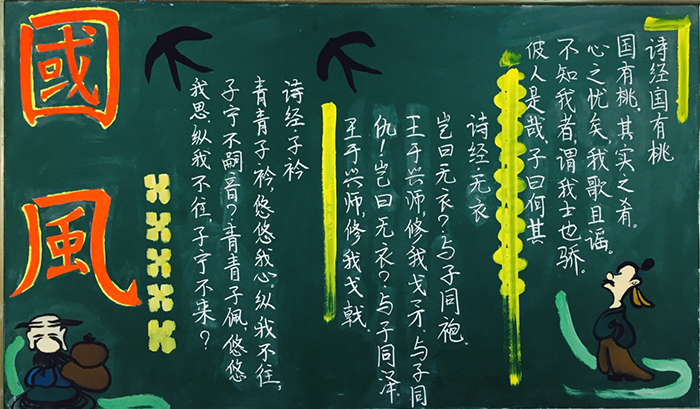 國風
诗经国有桃
国有桃，其实之肴。
心之忧矣，我歌且谣。
不知我者，谓我士也骄。
彼人是哉，子曰何其
诗经无衣
岂曰无衣？与子同袍。
王于兴师，修我戈矛，与子同
仇！岂曰无衣？与子同泽。
王于兴师，修我戈戟。
诗经子衿
青青子衿，悠悠我心。纵我不往，
子宁不嗣音？青青子佩，悠悠
我思，纵我不往，子宁不来？